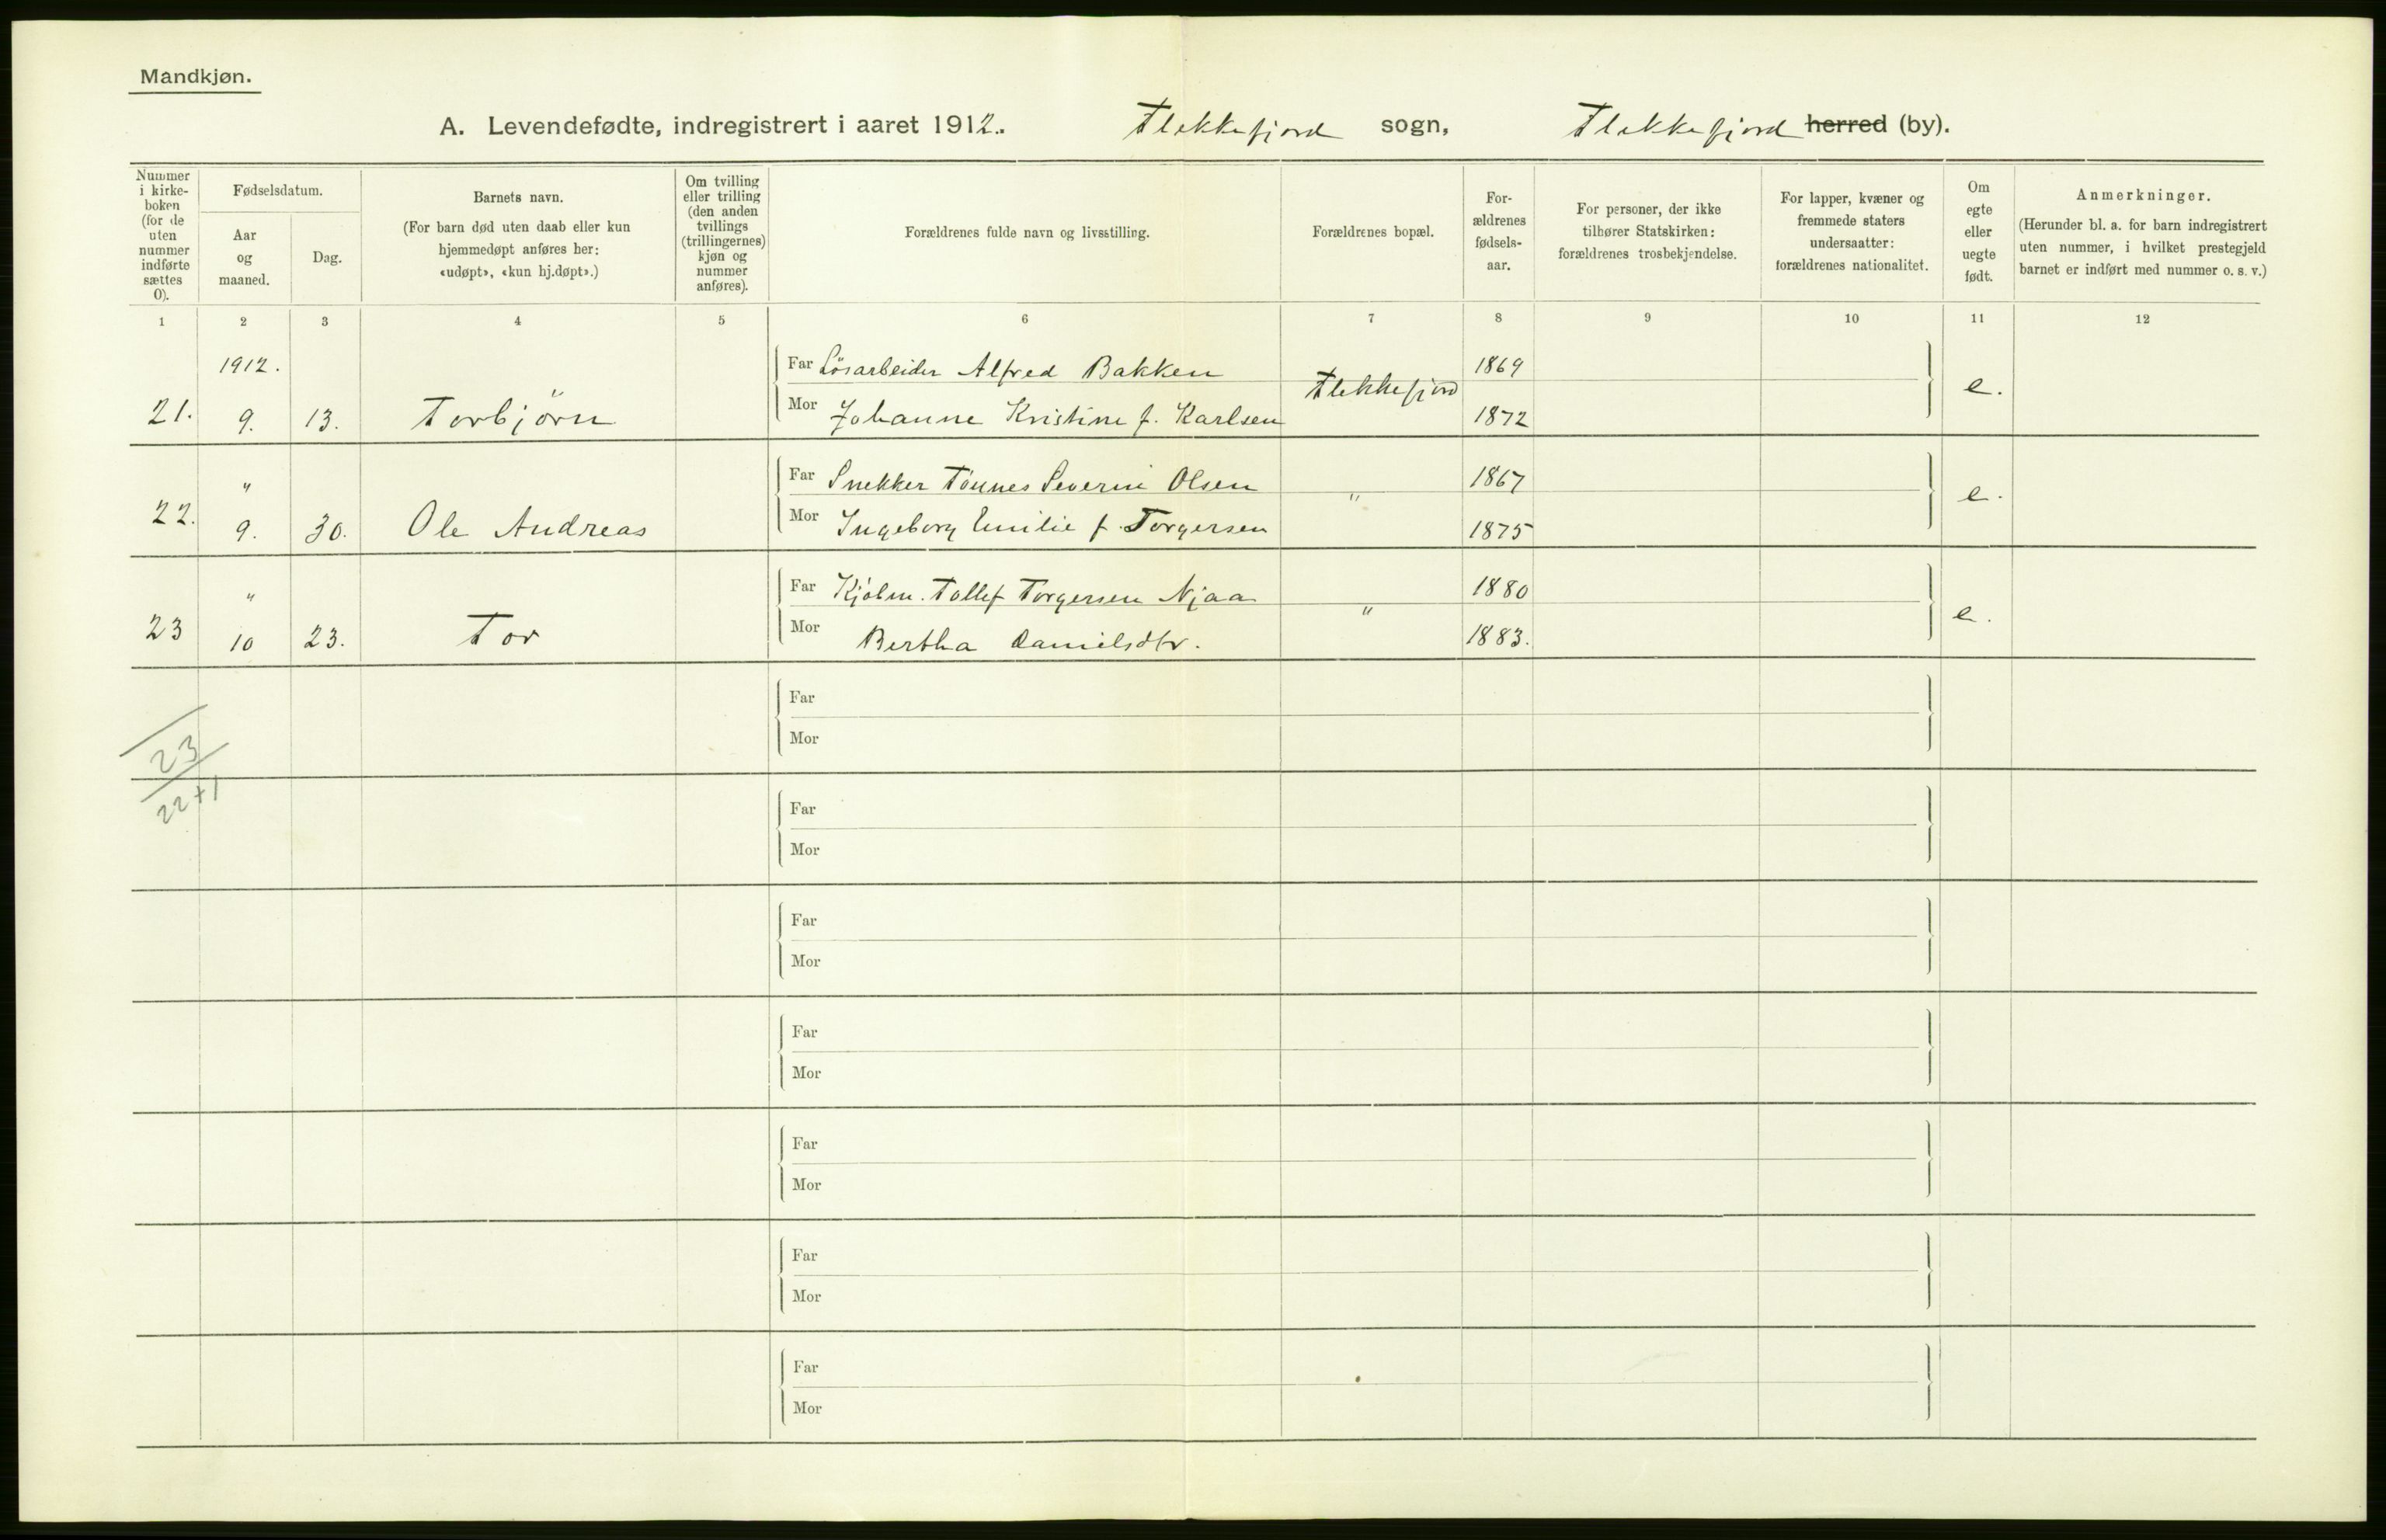 Mandkjøn.
A. Levendefødte, indregistrert i aaret 1912. Flekkefjord sogn, Flekkefjord herred (by).
Nummer i kirke-boken (for de uten nummer indførte sættes 0).
Fødselsdatum.
Aar og maaned.
Dag.
Barnets navn.
(For barn død uten daab eller kun hjemmedøpt anføres her: «udøpt», «kun hj.døpt».)
Om tvilling eller trilling (den anden tvillings (trillingernes) kjøn og nummer anføres).
Forældrenes fulde navn og livsstilling.
Forældrenes bopæl.
For-ældrenes fødsels-aar.
For personer, der ikke tilhører Statskirken: forældrenes trosbekjendelse.
For lapper, kvæner og fremmede staters undersaatter: forældrenes nationalitet.
Om egte eller uegte født.
Anmerkninger.
(Herunder bl. a. for barn indregistrert uten nummer, i hvilket prestegjeld barnet er indført med nummer o. s. v.)
1 2 3 4 5 6 7 8 9 10 11 12
1912. Far Løsarbeider Alfred Bakken Flekkefjord 1869 e.
21. 9. 13. Torbjörn Mor Johanne Kristine f. Karlsen 1872
" Far Snekker Tönnes Severin Olsen " 1867 e.
22. 9. 30. Ole Andreas Mor Ingeborg Emilie f. Torgersen 1875
" Far Kjøbm. Tollef Torgersen Njaa " 1880 e.
23 10 23. Tor Mor Bertha Danielsdtr. 1883.
Far
Mor
23
22+1
Far
Mor
Far
Mor
Far
Mor
Far
Mor
Far
Mor
Far
Mor